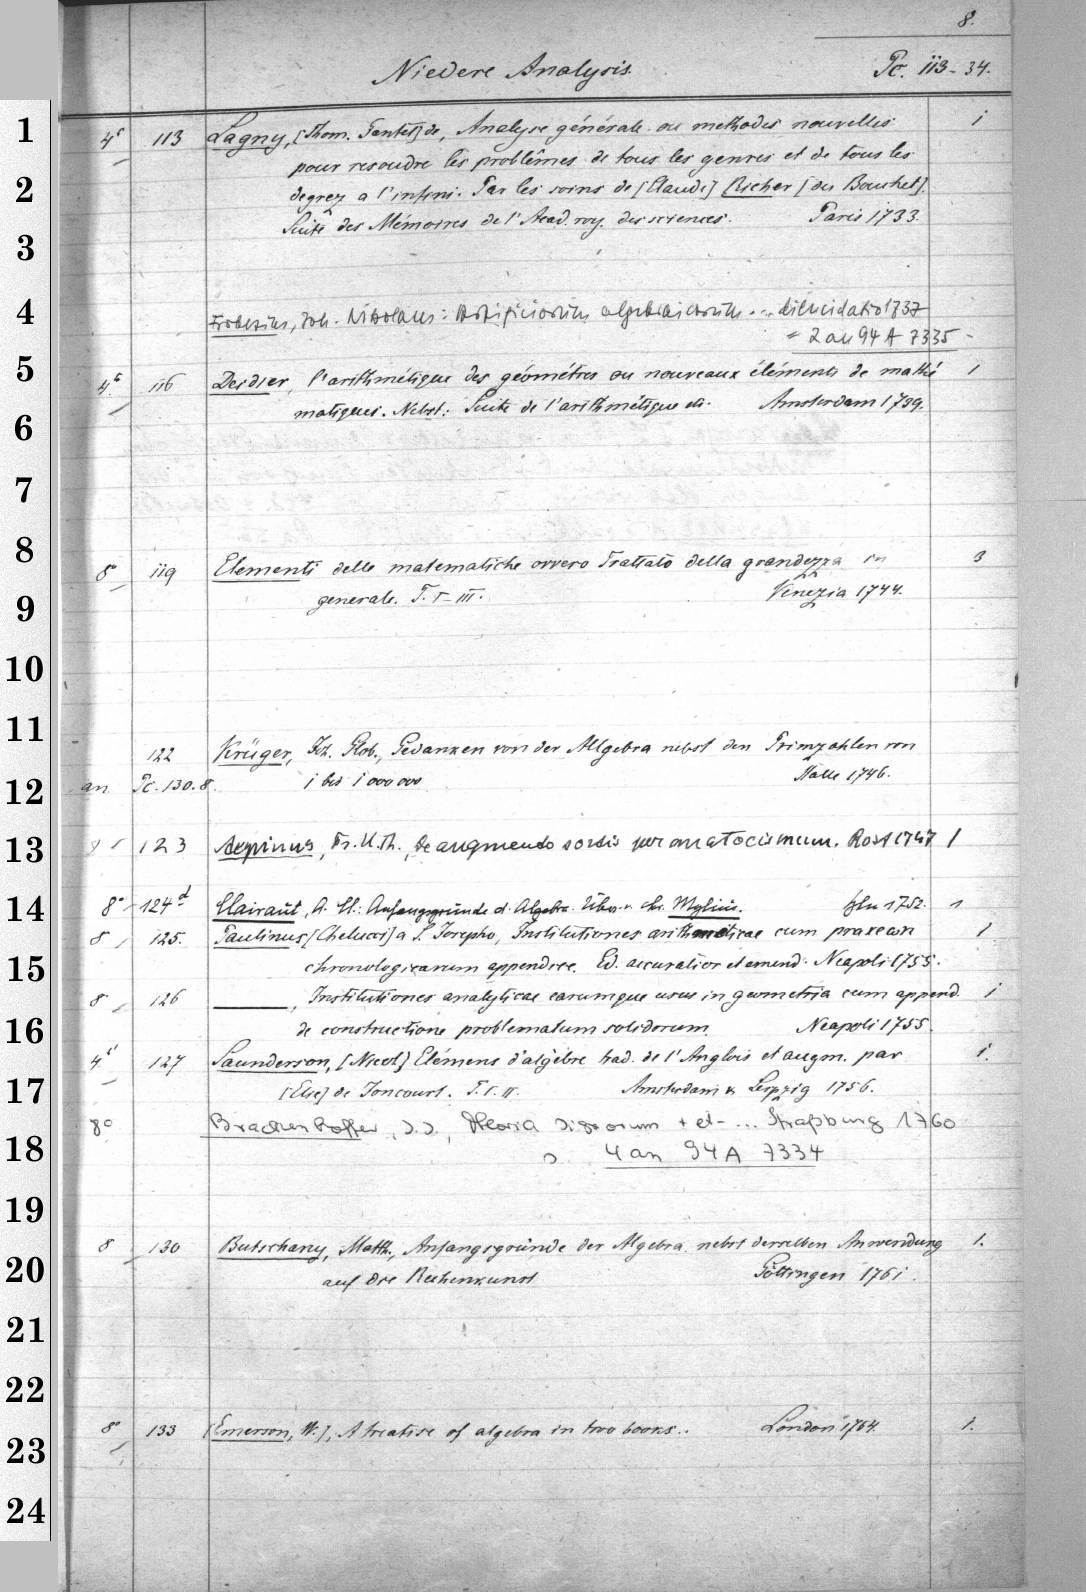 8.
Niedere Analysis. Pc. 113-34.
1
4° 113 Lagny, [Thom. Fantet] de, Analyse générale ou methodes nouvelles 1
pour resoudre les problêmes de tous les genres et de tous les
2
degrez a l'infini. Par les soins de [Claude] Richer [du Bouchet].
Suite des Mémoires de l'Acad. roy. des sciences. Paris 1733.
3
4
Frobesius, Joh. Nikolaus: Artificiorum algebraicorum ... dilucidatio 1737
= 2 an 94 A 7335 -
5
4° 116 Deidier, l'arithmétique des géométres ou nouveaux éléments de mathé 1
matiques. Nebst: Suite de l'arithmétique etc. Amsterdam 1739.
6
7
8
8° 119 Elementi delle matematiche ovvero Trattato della grandezza in 3
9
generale. T. I-III. Venezia 1744.
10
11
122 Krüger, Joh. Glob., Gedanken von der Allgebra nebst den Primzahlen von
12
an Pc. 130. 8. 1 bis 1 000 000 Halle 1746.
13
123 Aepinus, Fr. U. Th., De augmendo sortis per anatocismum. Rost 1747 1
14
8° 124d Clairaut, A. Cl.: Anfangsgründe d. Algebra. Übs. v. Chr. Mylius. Bln 1752. 1
8 125. Paulinus [Chelucci] a S. Josepho, Institutiones arithmeticae cum praxeon 1
15
chronologicarum appendice. Ed. accuratior et emend. Neapoli 1755.
8 126 ———, Institutiones analyticae earumque usus in geometria cum append. 1
16
de constructione problematum solidorum. Neapoli 1755.
4° 127 Saunderson, [Nicol.] Elémens d'algèbre trad. de l'Anglois et augm. par 1.
17
[Elie] de Joncourt. T. I. II. Amsterdam & Leipzig 1756.
8° Brackenhoffer, J. J., Theoria signorum + et - ... Straßburg 1760
18
4 an 94 A 7334
19
8 130 Butschany, Matth., Anfangsgründe der Algebra nebst derselben Anwendung 1.
20
auf die Rechenkunst Göttingen 1761.
21
22
8° 133 [Emerson, W.], A treatise of algebra in two books. London 1764. 1.
23
24